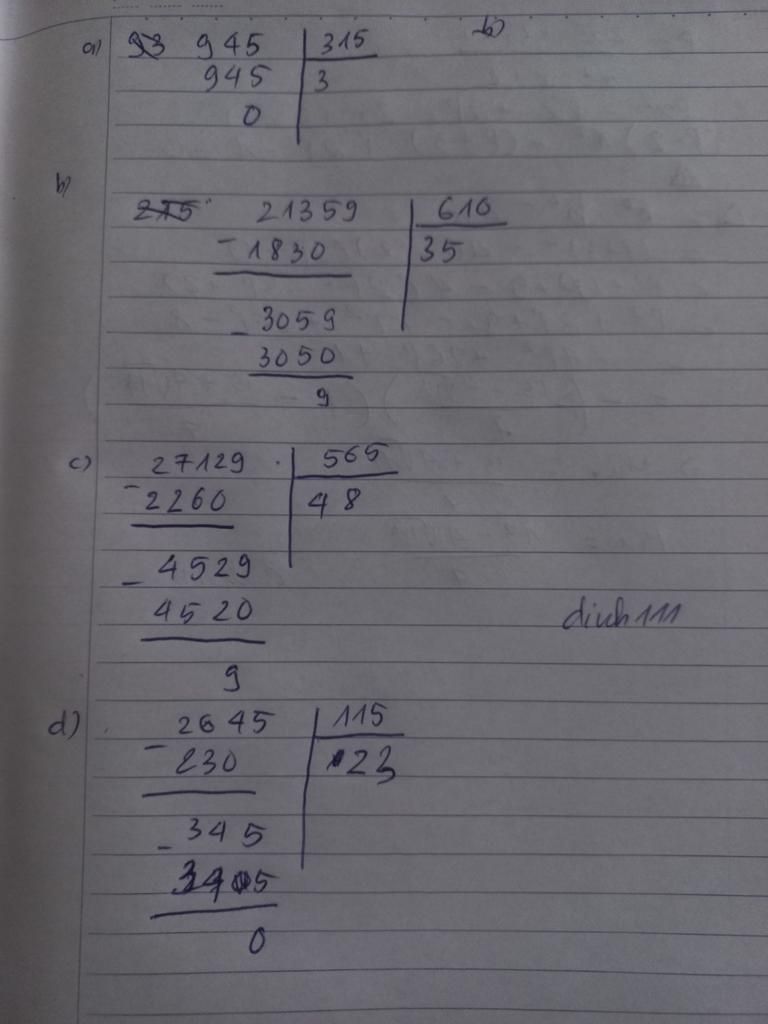 b)
a) 93 945 315
945 3
0
b)
275 21359 610
-1830 35
- 3059
3050
9
c) 27129 565
-2260 48
- 4529
4520
9
dinh111
d) 2645 115
- 230 23
- 345
345
0